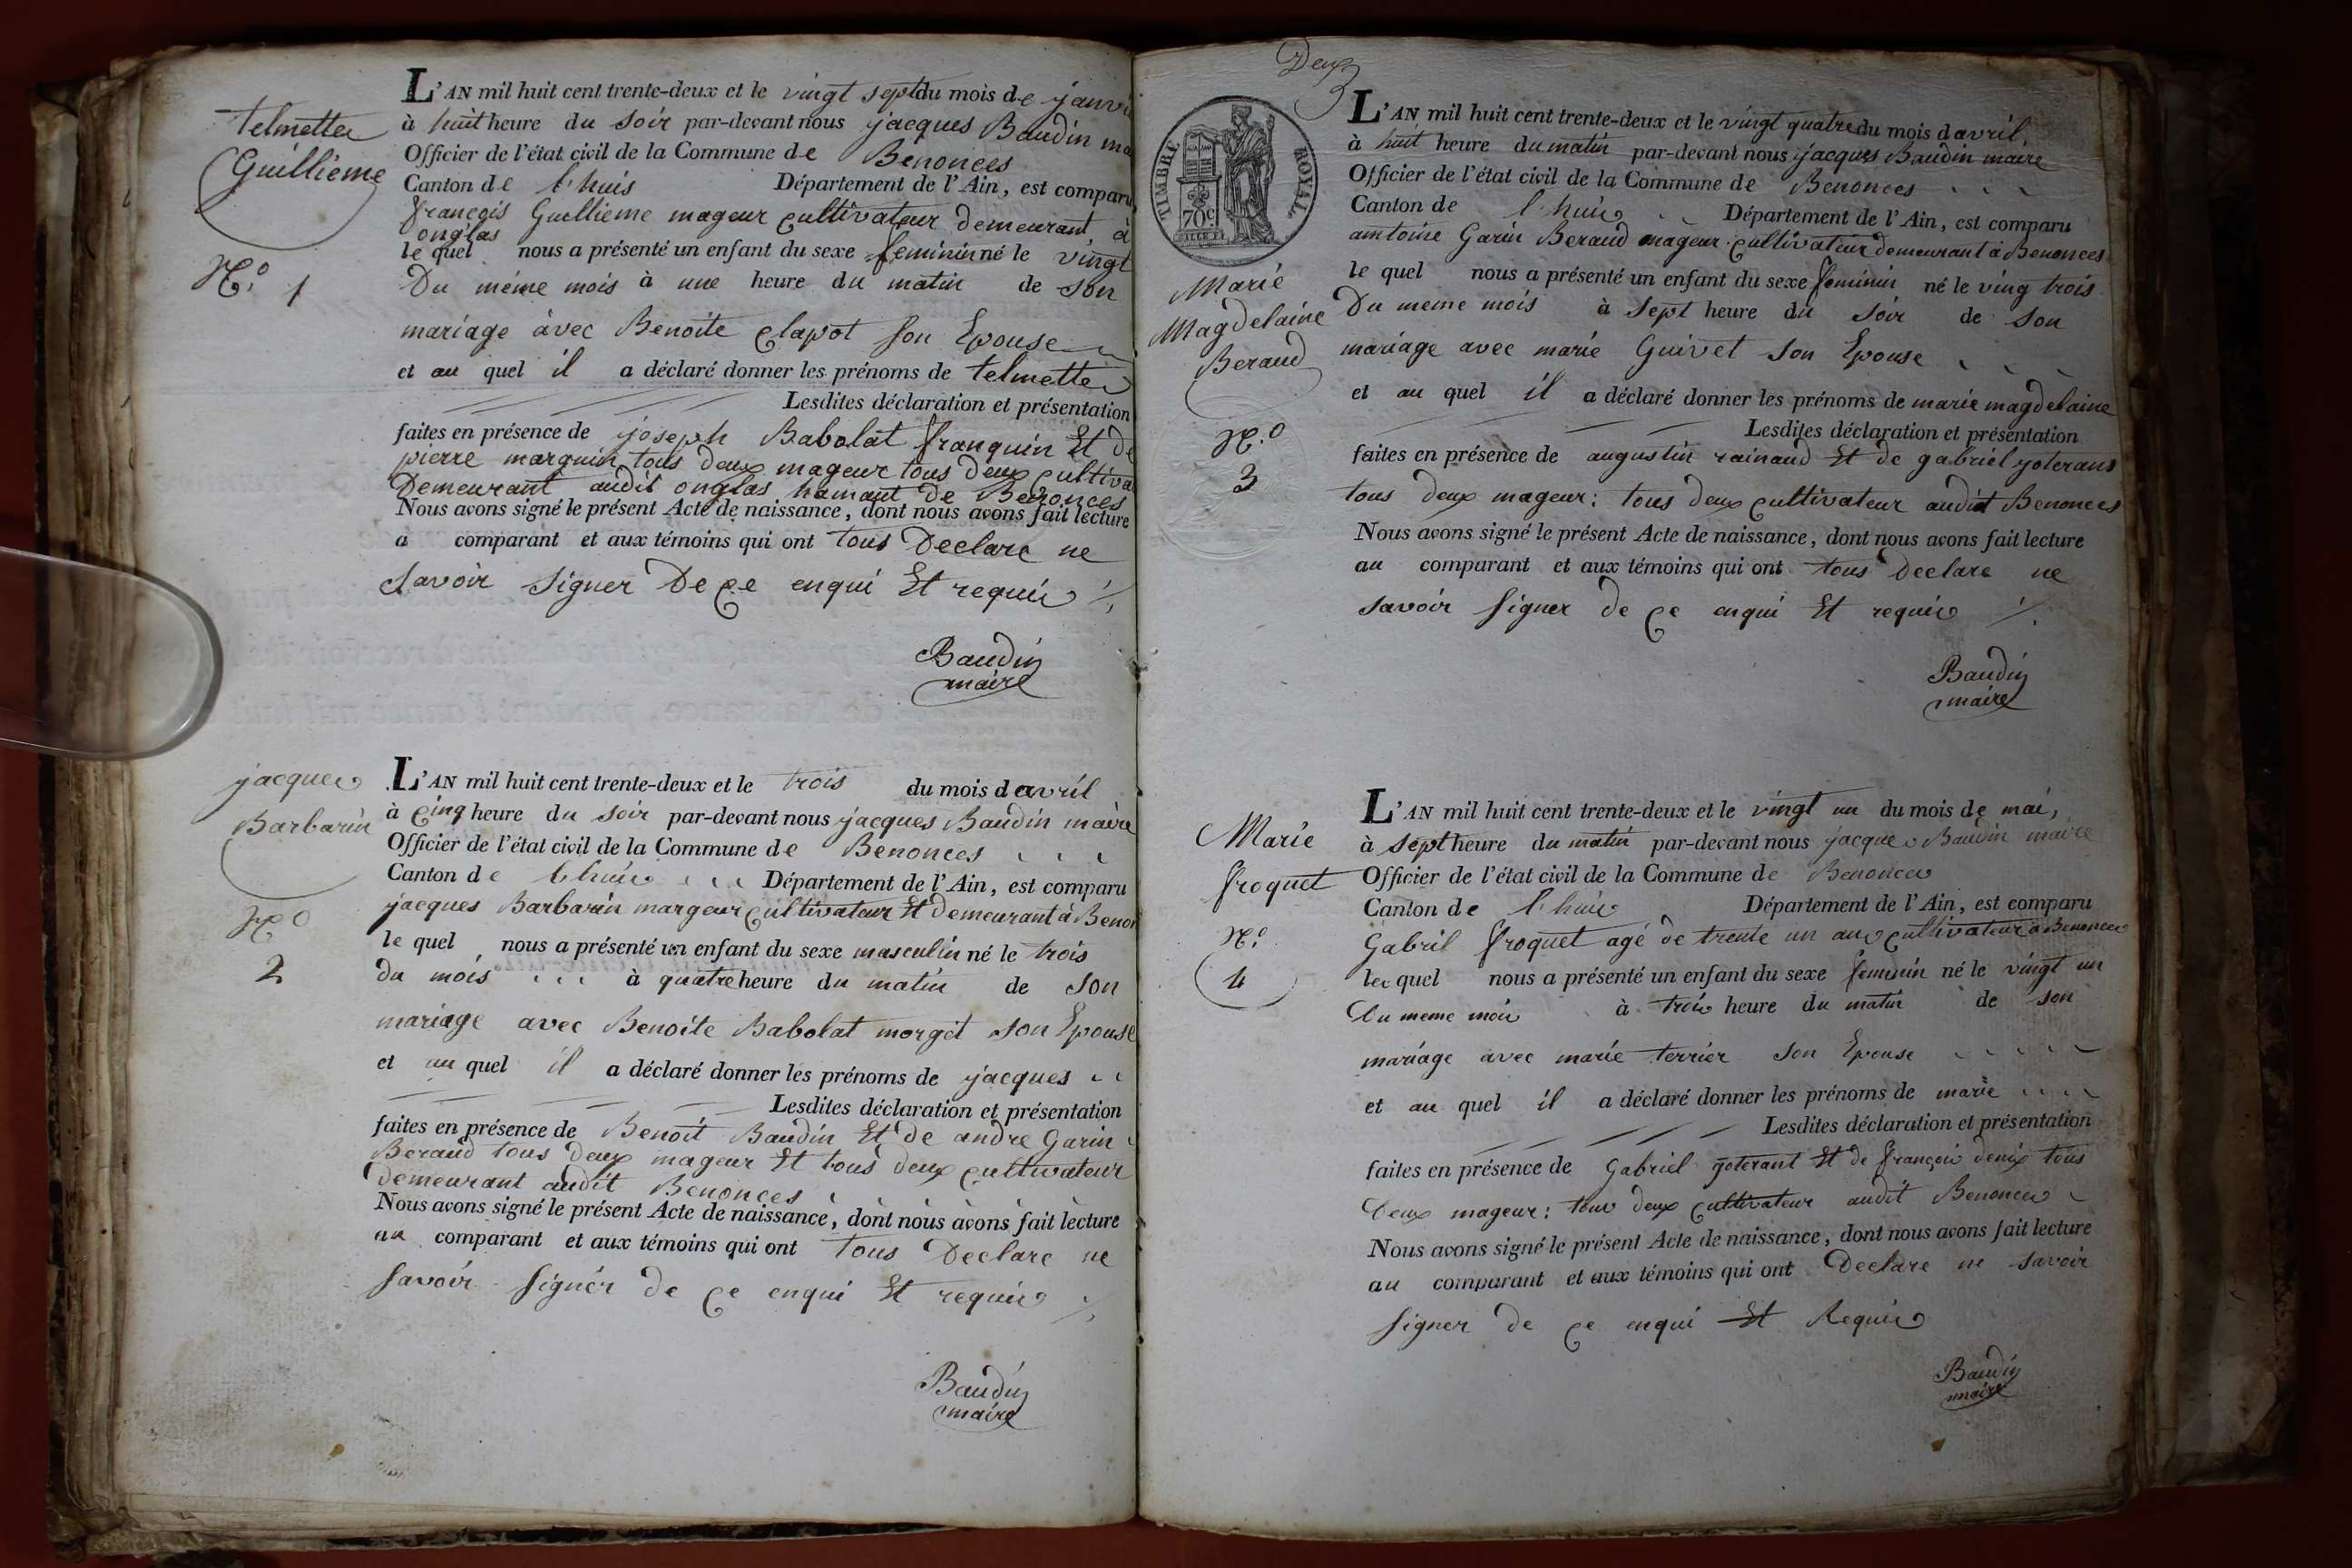 telmette
Guillieme
N.º 1
L'AN mil huit cent trente-deux et le vingt sept du mois de janvi
à huit heure du soir par-devant nous jacques Baudin ma
Officier de l'état civil de la Commune de Benonces
Canton de l'huis Département de l'Ain, est comparu
françois Guillieme mageur cultivateur demeurant à
onglas
le quel nous a présenté un enfant du sexe feminin né le vingt
Du méme mois à une heure du matin de son
mariage avec Benoite Clapot son Epouse
et au quel il a déclaré donner les prénoms de telmette
Lesdites déclaration et présentation
faites en présence de joseph Babolat franquin Et de
pierre marquin tous deux mageur tous deux cultiva
Demeurant audit onglas hamaut de Benonces
Nous avons signé le présent Acte de naissance, dont nous avons fait lecture
a comparant et aux témoins qui ont tous Declare ne
savoir signer De ce enqui Et requis
Baudin
maire
jacques
Barbarin
Nº
2
L'AN mil huit cent trente-deux et le trois du mois d avril
à cinq heure du soir par-devant nous jacques Baudin maire
Officier de l'état civil de la Commune de Benonces
Canton de l'huis Département de l'Ain, est comparu
jacques Barbarin margeur cultivateur Et demeurant à Benon
le quel nous a présenté un enfant du sexe masculin né le trois
du mois à quatre heure du matin de son
mariage avec Benoite Babolat morget son Epouse
et au quel il a déclaré donner les prénoms de jacques
Lesdites déclaration et présentation
faites en présence de Benoit Baudin Et de andre Garin
Beraud tous deux mageur Et tous deux cultivateur
demeurant audit Benonces
Nous avons signé le présent Acte de naissance, dont nous avons fait lecture
au comparant et aux témoins qui ont tous Declare ne
savoir signer de ce enqui Et requis
Baudin
maire
Deux
TIMBRE ROYAL
70 c
Marie
Magdelaine
Beraud
N.º
3
L'AN mil huit cent trente-deux et le vingt quatre du mois d avril
à huit heure du matin par-devant nous jacques Baudin maire
Officier de l'état civil de la Commune de Benonces
Canton de l'huis Département de l'Ain, est comparu
antoine Garin Beraud mageur cultivateur demeurant à Benonces
le quel nous a présenté un enfant du sexe feminin né le ving trois
Du meme mois à sept heure du soir de son
mariage avec marie Guivet son Epouse
et au quel il a déclaré donner les prénoms de marie magdelaine
Lesdites déclaration et présentation
faites en présence de augustin rainaud Et de gabriel joterans
tous deux mageur: tous deux cultivateur audit Benonces
Nous avons signé le présent Acte de naissance, dont nous avons fait lecture
au comparant et aux témoins qui ont tous Declare ne
savoir signer de ce enqui Et requis
Baudin
maire
Marie
froquet
N.º
4
L'AN mil huit cent trente-deux et le vingt un du mois de mai,
à sept heure du matin par-devant nous jacques Baudin maire
Officier de l'état civil de la Commune de Benonces
Canton de l'huis Département de l'Ain, est comparu
Gabriel froquet agé de trente un ans cultivateur a Benonces
lec quel nous a présenté un enfant du sexe feminin né le vingt un
Du meme mois à trois heure du matin de son
mariage avec marie terrier son Epouse
et au quel il a déclaré donner les prénoms de marie
Lesdites déclaration et présentation
faites en présence de Gabriel joterant Et de françois denix tous
Deux mageur: tous deux cultivateur audit Benonces
Nous avons signé le présent Acte de naissance, dont nous avons fait lecture
au comparant et aux témoins qui ont Declare ne savoir
signer de ce enqui Et Requis
Baudin
maire